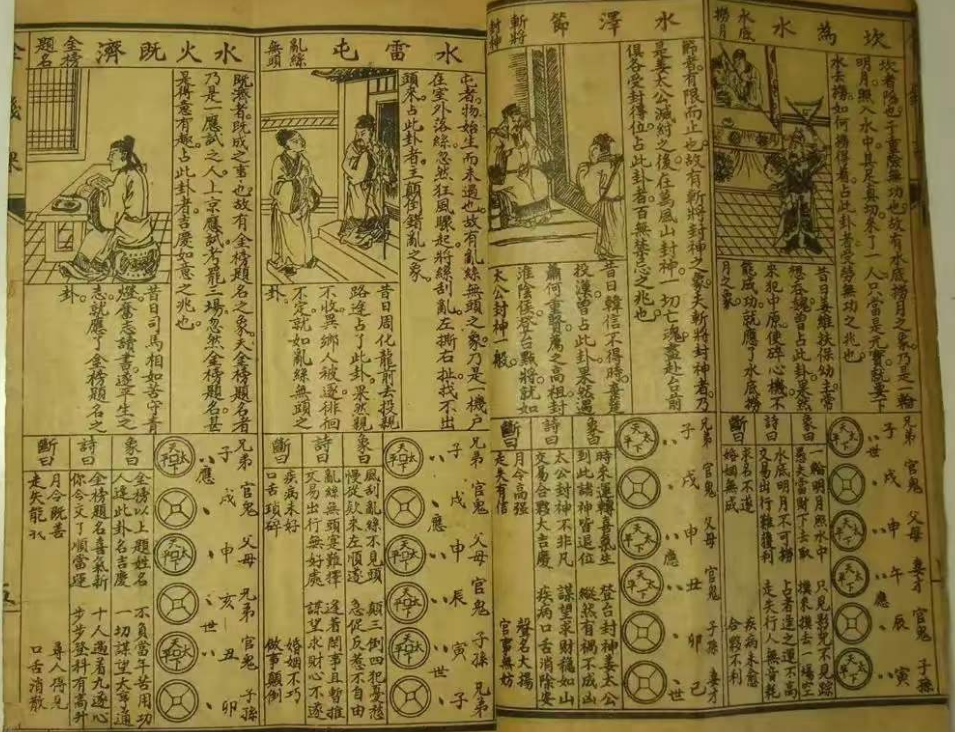 坎為水
水底撈月
坎者陷也
重險無功也故有水底撈月之象乃是一輪
明月照入水中甚是真切來了一人只當是元寶
要下
水去撈如何撈得着占此卦者受勞無功之兆也
昔日姜維扶保幼主常
曾占此卦果然
犯中原使碎心機不
能成功就應了水底撈
月之象
兄弟 官鬼 父母 妻才 官鬼 子孫
子 戌 申 午 辰 寅
世 應
天下太平
象曰
一輪明月照水中 只見影兒不見踪
愚夫當財下去取 摸來摸去一場空
詩曰
水底明月不可撈 占者逢之運不高
交易出行難獲利 走失行人無資耗
斷曰
求名不遂 疾病未愈
婚姻無成 合夥不利
水澤節
斬將封神
節者有限而止也故有斬將封神之象夫斬將封神者乃
是姜太公滅紂之後在萬風山封神一切亡魂盡赴台前
俱各受封得位占此卦者百無禁忌之兆也
昔日韓信不得時棄楚
投漢曾占此卦果然遇
蕭何重賢薦之高祖封
淮陰侯登台點將就如
太公封神一般
兄弟 官鬼 父母 官鬼 子孫 妻才
子 戌 申 丑 卯 巳
應 世
天下太平
象曰
時來運轉喜氣生 登台封神姜太公
到此諸神皆退位 縱然有禍不成凶
詩曰
太公封神不非凡 謀望求財穩如山
交易合夥大吉慶 疾病口舌消除安
斷曰
月令高強 聲名大揚
走失有信 官事無妨
水雷屯
亂絲無頭
屯者物始生而未通也故有亂絲無頭之象乃是一機戶
在室外落絲忽然狂風驟起將絲刮亂左撕右扯找不出
頭來占此卦者主顛倒錯亂之象
昔日周化龍前去投親
路逢占了此卦果然親
不收異鄉人被逐徘徊
不定就如亂絲無頭之
卦
兄弟 官鬼 父母 官鬼 子孫 兄弟
子 戌 申 辰 寅 子
應 世
天下太平
象曰
風刮亂絲不見頭 顛三倒四犯憂愁
慢從款來左順遂 急促反惹不自由
詩曰
亂絲無頭定難擇 逢著閒事且暫推
交易出行無好處 謀望求財心不遂
斷曰
疾病未好 婚姻不巧
口舌瑣碎 做事顛倒
水火既濟
金榜題名
既濟者既成之事也故有金榜題名之象夫金榜題名者
乃是一應試之人上京應試考罷三場忽然金榜題名甚
是得意有趣占此卦者吉慶如意之兆也
昔日司馬相如苦守青
燈奮志讀書遂平生之
志就應了金榜題名之
卦
兄弟 官鬼 父母 兄弟 官鬼 子孫
子 戌 申 亥 丑 卯
應 世
天下太平
象曰
金榜以上題姓名 不負當年苦用功
人逢此卦名吉慶 一切謀望大亨通
詩曰
金榜題名喜氣新 十人遇着九遂心
你今交了順當運 步步登科有高升
斷曰
月令既善 尋人得見
走失能 口舌消散